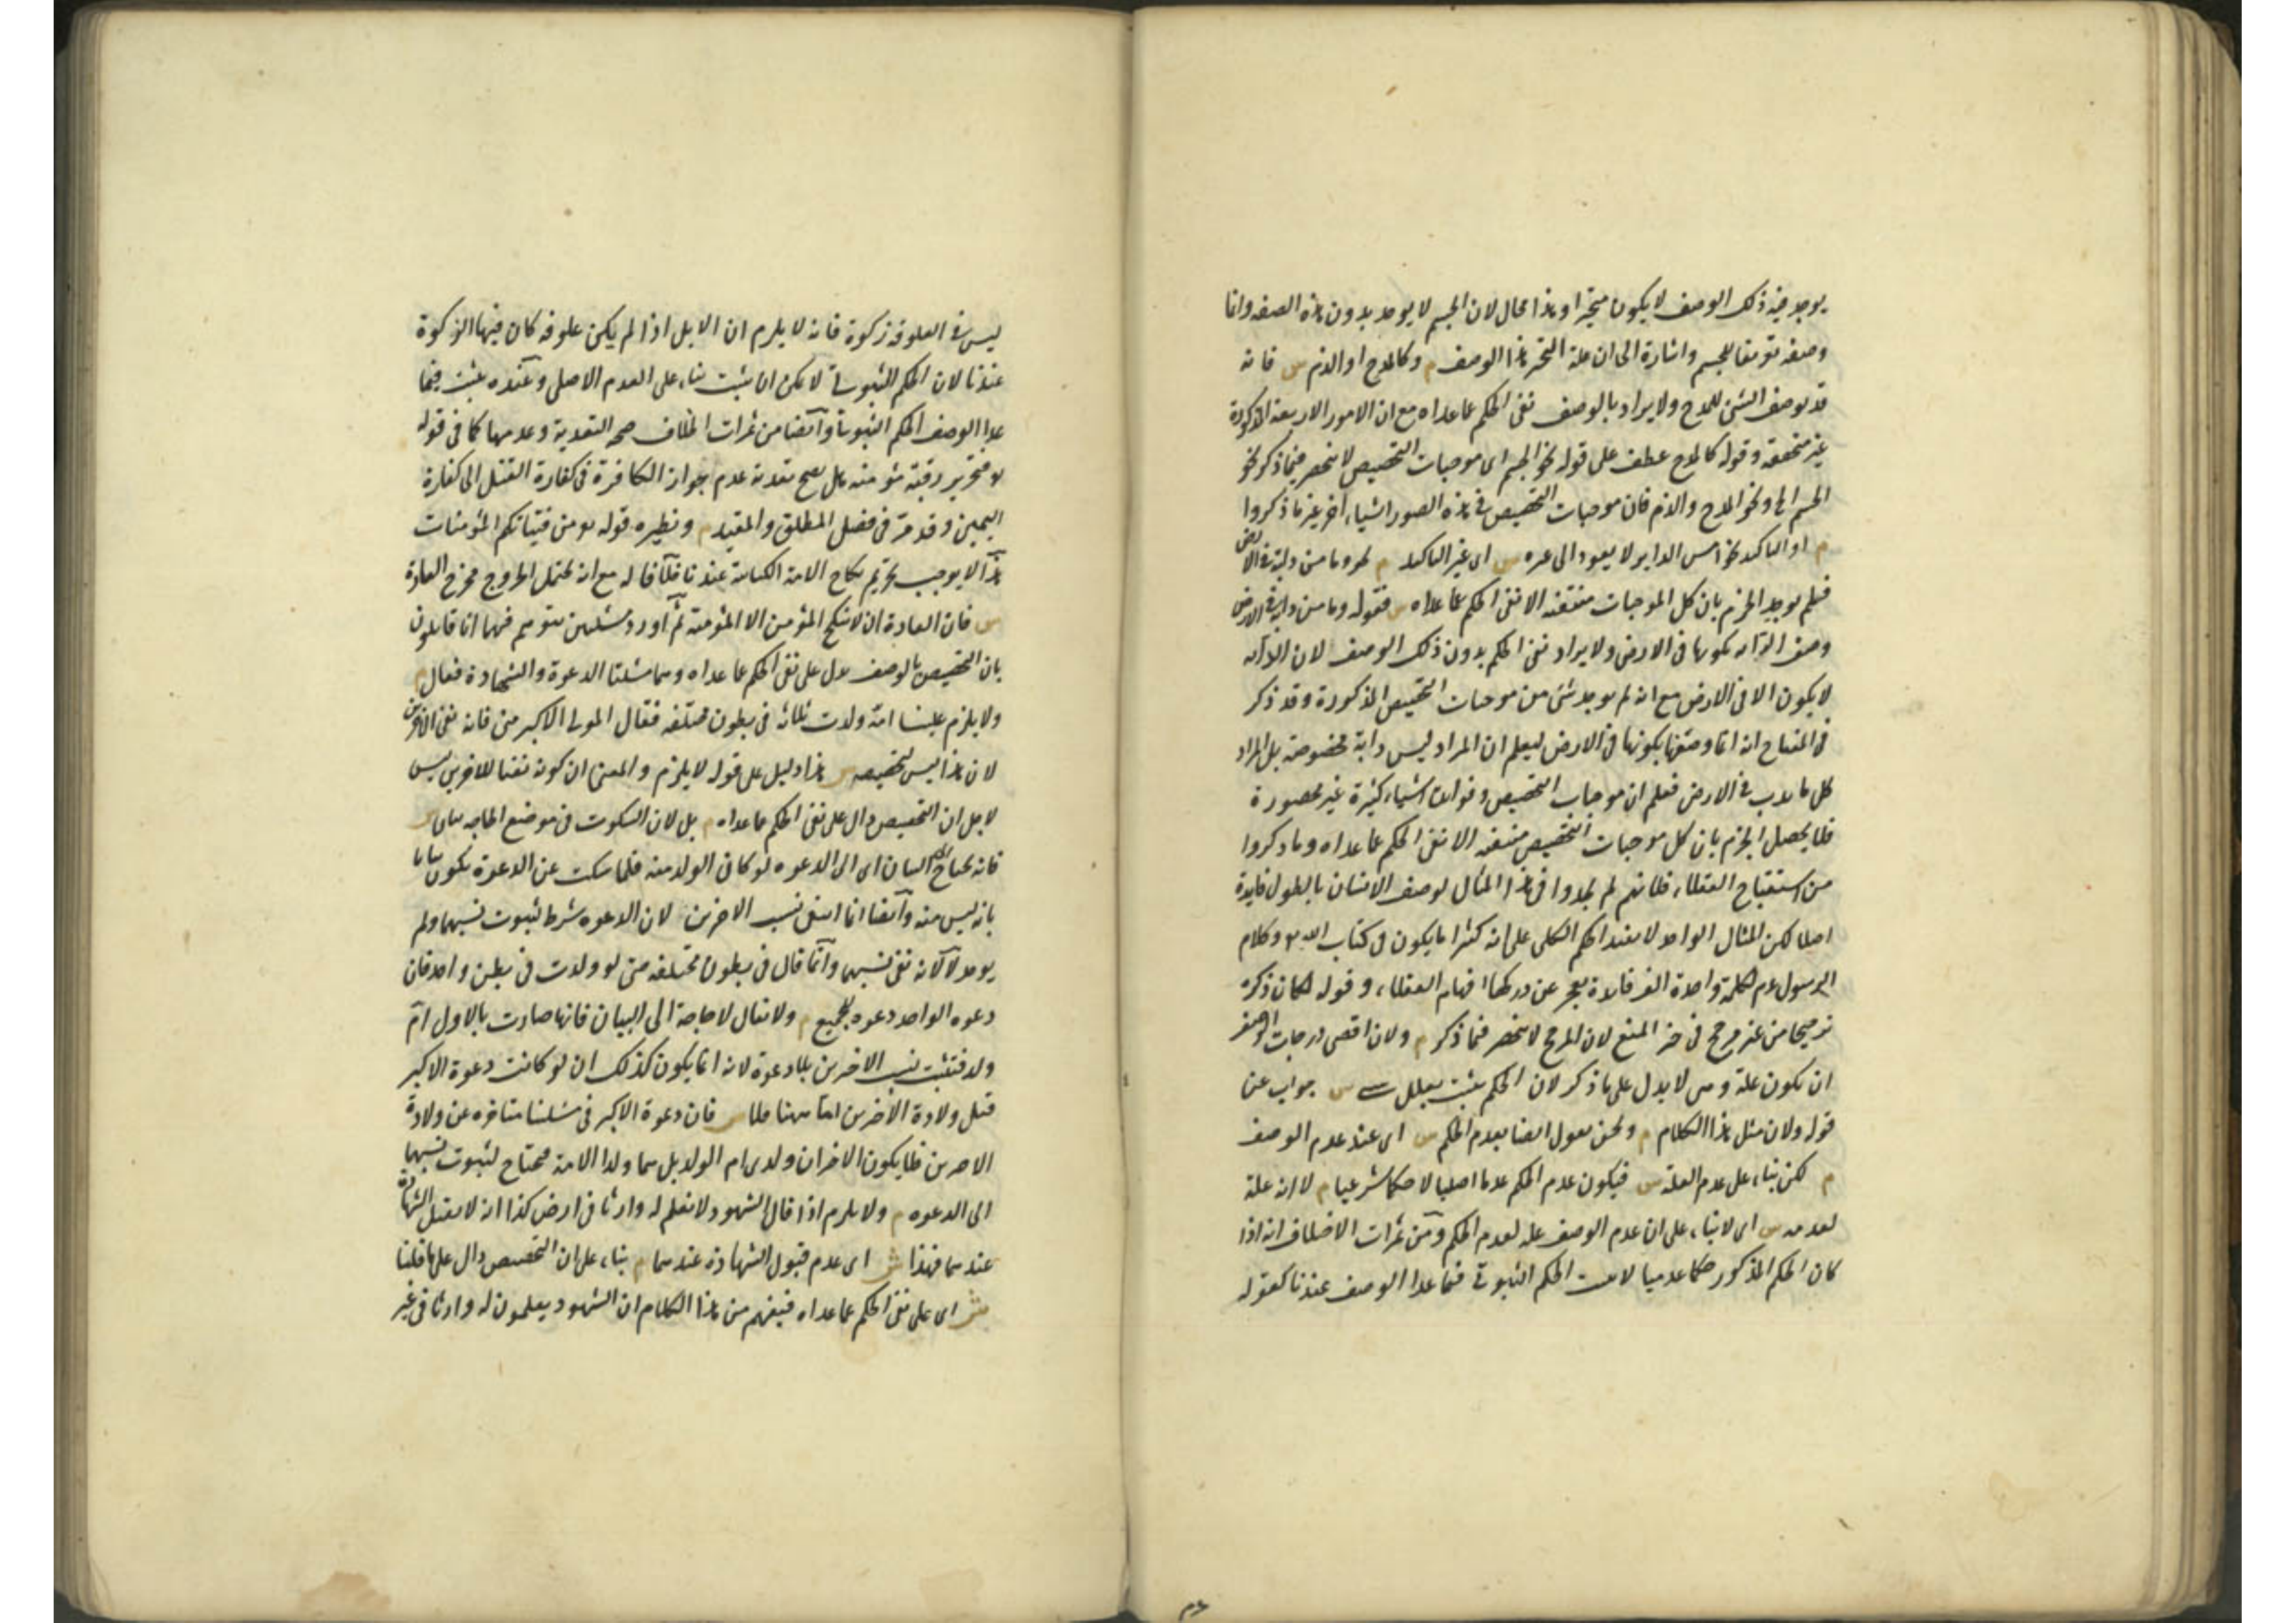 يوجد فيه ذلك الوصف لا يكون متحيزا وهذا محال لان الجسم لا يوجد بدون هذه الصفة وانما
وصفه تعريفا للجسم واشارة الى ان علة التحيز هذا الوصف م وكالمدح او الذم س فانه
قد يوصف الشئ للمدح ولا يراد بالوصف نفى الحكم عما عداه مع ان الامور الاربعة المذكورة
غير متحققة وقوله كالمدح عطف على قوله نحو الجسم اى موجبات التخصيص لا تنحصر فيما ذكر نحو
الجسم الخ ونحو المدح والذم فان موجبات التخصيص فى هذه الصور اشياء اخر غير ما ذكروا
م او التاكيد نحو امس الدابر لا يعود الى غيره س اى غير التاكيد م نحو وما من دابة فى الارض
فلم يوجد الجزم بان كل الموجبات منتفية الا نفى الحكم عما عداه س فقوله وما من دابة فى الارض
وصف الدابة بكونها فى الارض ولا يراد نفى الحكم بدون ذلك الوصف لان الدابة
لا يكون الا فى الارض مع انه لم يوجد شئ من موجبات التخصيص المذكورة وقد ذكر
فى المفتاح انه انما وصفها بكونها فى الارض ليعلم ان المراد ليس دابة مخصوصة بل المراد
كل ما يدب فى الارض فعلم ان موجبات التخصيص وفوائد اشياء كثيرة غير محصورة
فلا يحصل الجزم بان كل موجبات التخصيص منتفيه الا نفى الحكم عما عداه وما ذكروا
من استقباح العقلاء فلانهم لم يجدوا فى هذا المثال لوصف الانسان بالطول فايدة
اصلا لكن المثال الواحد لا يفيد الحكم الكلى على انه كثيرا ما يكون فى كتاب الله وكلام
الرسول عم لكلمة واحدة الف فايدة يعجز عن دركها افهام العقلاء وقوله لكان ذكره
ترجيحا من غير مرجح فى حيز المنع لان المرجح لا ينحصر فيما ذكر م ولان اقصى درجات الوصف
ان يكون علة وهى لا يدل على ما ذكر لان الحكم يثبت بعلل شتى س جواب عن
قوله ولان مثل هذا الكلام م ونحن نقول ايضا بعدم الحكم س اى عند عدم الوصف
م لكن بناء على عدم العلة س فيكون عدم الحكم عدما اصليا لا حكما شرعيا م لا انه علة
لعدمه س اى لا بناء على ان عدم الوصف علة لعدم الحكم ومن ثمرات الاختلاف انه اذا
كان الحكم المذكور حكما عدميا لا يثبت الحكم الثبوتى فيما عدا الوصف عندنا كقوله
ليس فى العلوفة زكوة فانه لا يلزم ان الابل اذا لم يكن علوفة كان فيها الزكوة
عندنا لان الحكم الثبوتى لا يمكن ان يثبت بناء على العدم الاصلى وعنده يثبت فيما
عدا الوصف الحكم الثبوتى وايضا من ثمرات الخلاف صحة التعدية وعدمها كما فى قوله
فتحرير رقبة مؤمنة هل يصح تعدية عدم جواز الكافرة فى كفارة القتل الى كفارة
اليمين وقد مر فى فصل المطلق والمقيد م ونظيره قوله من فتياتكم المؤمنات
هذا لا يوجب تحريم نكاح الامة الكتابية عندنا خلافا له مع انه يحتمل الخروج مخرج العادة
س فان العادة ان لا ينكح المؤمن الا المؤمنة ثم اورد مسئلتين يتوهم فيهما انا قايلون
بان التخصيص بالوصف يدل على نفى الحكم عما عداه وهما مسئلتا الدعوة والشهادة فقال م
ولا يلزم علينا امة ولدت ثلاثة فى بطون مختلفة فقال المولى الاكبر منى فانه نفى الاخرين
لان هذا ليس لتخصيصه س هذا دليل على قوله لا يلزم والمعنى ان كونه نفيا للاخرين ليس
لاجل ان التخصيص دال على نفى الحكم عما عداه م بل لان السكوت فى موضع الحاجة بيان س
فانه يحتاج الى البيان اى الى الدعوة لو كان الولد منه فلما سكت عن الدعوة يكون بيانا
بانه ليس منه وايضا انما انتفى نسب الاخرين لان الدعوة شرط لثبوت نسبهما ولم
يوجد لا لانه نفى نسبهما وانما قال فى بطون مختلفة حتى لو ولدت فى بطن واحد فان
دعوة الواحد دعوة للجميع م ولا يقال لا حاجة الى البيان فانها صارت بالاول ام
ولد فيثبت نسب الاخرين بلا دعوة لانه انما يكون كذلك ان لو كانت دعوة الاكبر
قبل ولادة الاخرين اما ههنا فلا س فان دعوة الاكبر فى مسئلتنا متاخرة عن ولادة
الاخرين فلا يكون الاخران ولدى ام الولد بل هما ولدا الامة فيحتاج لثبوت نسبهما
الى الدعوة م ولا يلزم اذا قال الشهود لا نعلم له وارثا فى ارض كذا انه لا يقبل الشهادة
عندهما فهذا ش اى عدم قبول الشهادة عندهما م بناء على ان التخصيص دال على ما قلنا
ش اى على نفى الحكم عما عداه فيفهم من هذا الكلام ان الشهود يعلمون له وارثا فى غير